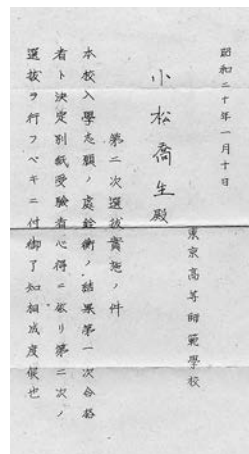 昭和二十年一月十日
東京高等師範學校
小松喬生殿
第二次選拔實施ノ件
本校入學志願ノ處銓衡ノ結果第一次合格
者ト決定別紙受驗者心得ニ依リ第二次ノ
選拔ヲ行フベキニ付御了知相成度候也